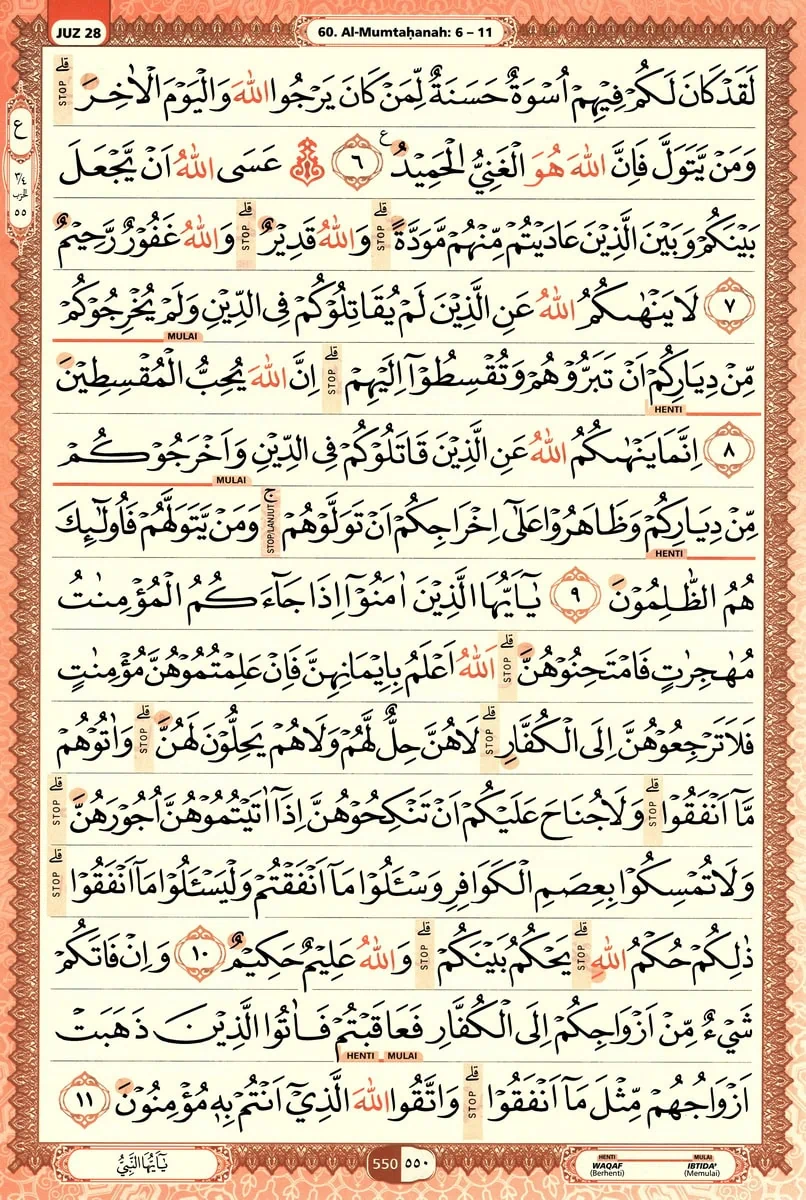 JUZ 28
60. Al-Mumtaḥanah: 6 – 11
ع
٣/٤
الحزب
٥٥
لَقَدْ كَانَ لَكُمْ فِيْهِمْ اُسْوَةٌ حَسَنَةٌ لِّمَنْ كَانَ يَرْجُوا اللّٰهَ وَالْيَوْمَ الْاٰخِرَ ۗ STOP
وَمَنْ يَّتَوَلَّ فَاِنَّ اللّٰهَ هُوَ الْغَنِيُّ الْحَمِيْدُ ࣖ ٦ ۞ عَسَى اللّٰهُ اَنْ يَّجْعَلَ
بَيْنَكُمْ وَبَيْنَ الَّذِيْنَ عَادَيْتُمْ مِّنْهُمْ مَّوَدَّةً ۗ STOP وَاللّٰهُ قَدِيْرٌ ۗ STOP وَاللّٰهُ غَفُوْرٌ رَّحِيْمٌ
٧ لَا يَنْهٰىكُمُ اللّٰهُ عَنِ الَّذِيْنَ لَمْ يُقَاتِلُوْكُمْ فِى الدِّيْنِ وَلَمْ يُخْرِجُوْكُمْ
MULAI
مِّنْ دِيَارِكُمْ اَنْ تَبَرُّوْهُمْ وَتُقْسِطُوْٓا اِلَيْهِمْ ۗ STOP اِنَّ اللّٰهَ يُحِبُّ الْمُقْسِطِيْنَ
HENTI
٨ اِنَّمَا يَنْهٰىكُمُ اللّٰهُ عَنِ الَّذِيْنَ قَاتَلُوْكُمْ فِى الدِّيْنِ وَاَخْرَجُوْكُمْ
MULAI
مِّنْ دِيَارِكُمْ وَظَاهَرُوْا عَلٰٓى اِخْرَاجِكُمْ اَنْ تَوَلَّوْهُمْ ۚ STOP/LANJUT وَمَنْ يَّتَوَلَّهُمْ فَاُولٰۤىِٕكَ
HENTI
هُمُ الظّٰلِمُوْنَ ٩ يٰٓاَيُّهَا الَّذِيْنَ اٰمَنُوْٓا اِذَا جَاۤءَكُمُ الْمُؤْمِنٰتُ
مُهٰجِرٰتٍ فَامْتَحِنُوْهُنَّ ۗ STOP اَللّٰهُ اَعْلَمُ بِاِيْمَانِهِنَّ فَاِنْ عَلِمْتُمُوْهُنَّ مُؤْمِنٰتٍ
فَلَا تَرْجِعُوْهُنَّ اِلَى الْكُفَّارِ ۗ STOP لَا هُنَّ حِلٌّ لَّهُمْ وَلَا هُمْ يَحِلُّوْنَ لَهُنَّ ۗ STOP وَاٰتُوْهُمْ
مَّآ اَنْفَقُوْا ۗ STOP وَلَا جُنَاحَ عَلَيْكُمْ اَنْ تَنْكِحُوْهُنَّ اِذَآ اٰتَيْتُمُوْهُنَّ اُجُوْرَهُنَّ ۗ STOP
وَلَا تُمْسِكُوْا بِعِصَمِ الْكَوَافِرِ وَسْـَٔلُوْا مَآ اَنْفَقْتُمْ وَلْيَسْـَٔلُوْا مَآ اَنْفَقُوْا ۗ STOP
ذٰلِكُمْ حُكْمُ اللّٰهِ ۗ STOP يَحْكُمُ بَيْنَكُمْ ۗ STOP وَاللّٰهُ عَلِيْمٌ حَكِيْمٌ ١٠ وَاِنْ فَاتَكُمْ
شَيْءٌ مِّنْ اَزْوَاجِكُمْ اِلَى الْكُفَّارِ فَعَاقَبْتُمْ فَاٰتُوا الَّذِيْنَ ذَهَبَتْ
MULAI HENTI
اَزْوَاجُهُمْ مِّثْلَ مَآ اَنْفَقُوْا ۗ STOP وَاتَّقُوا اللّٰهَ الَّذِيْٓ اَنْتُمْ بِهٖ مُؤْمِنُوْنَ ١١
يٰٓاَيُّهَا النَّبِيُّ
550 ٥٥٠
HENTI WAQAF (Berhenti)
MULAI IBTIDA' (Memulai)